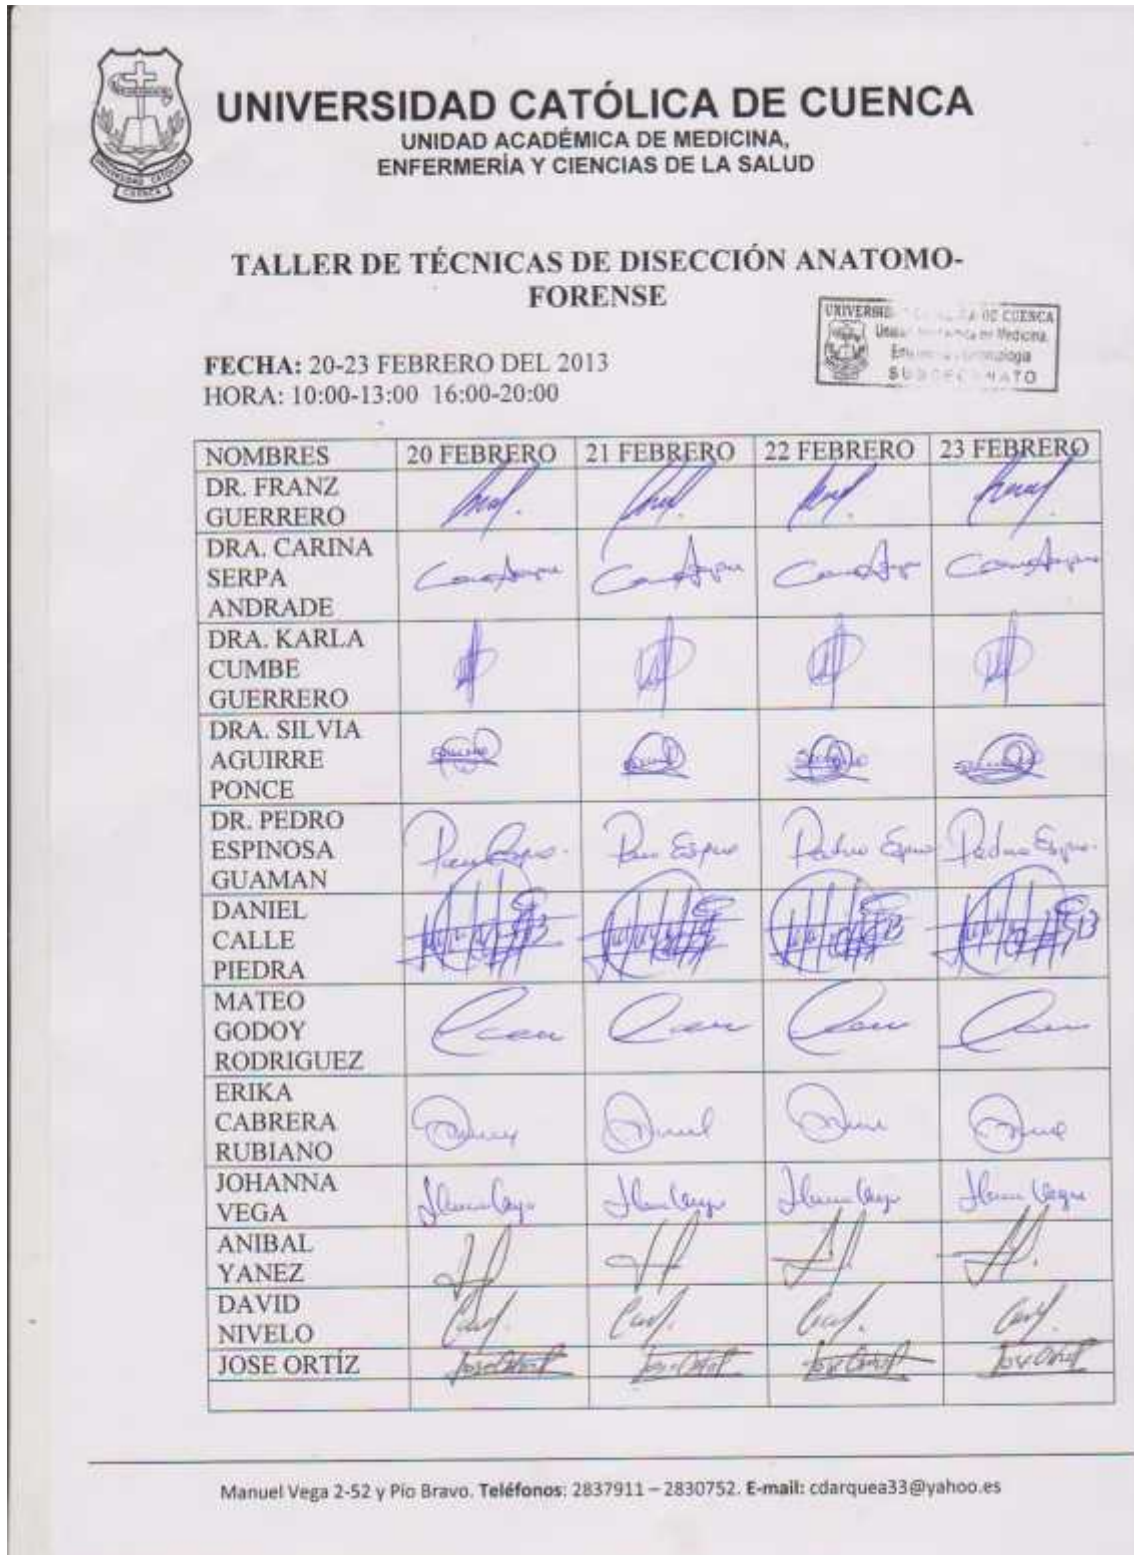 UNIVERSIDAD CATÓLICA DE CUENCA
UNIDAD ACADÉMICA DE MEDICINA,
ENFERMERÍA Y CIENCIAS DE LA SALUD
UNIVERSIDAD CATÓLICA
CUENCA
TALLER DE TÉCNICAS DE DISECCIÓN ANATOMO-
FORENSE
DE CUENCA
de Medicina
SUBDECANATO
FECHA: 20-23 FEBRERO DEL 2013
HORA: 10:00-13:00 16:00-20:00
NOMBRES 20 FEBRERO 21 FEBRERO 22 FEBRERO 23 FEBRERO
DR. FRANZ
GUERRERO
DRA. CARINA
SERPA
ANDRADE
DRA. KARLA
CUMBE
GUERRERO
DRA. SILVIA
AGUIRRE
PONCE
DR. PEDRO
ESPINOSA
GUAMAN
DANIEL
CALLE
PIEDRA
MATEO
GODOY
RODRIGUEZ
ERIKA
CABRERA
RUBIANO
JOHANNA
VEGA
ANIBAL
YANEZ
DAVID
NIVELO
JOSE ORTÍZ
Manuel Vega 2-52 y Pío Bravo. Teléfonos: 2837911 – 2830752. E-mail: cdarquea33@yahoo.es